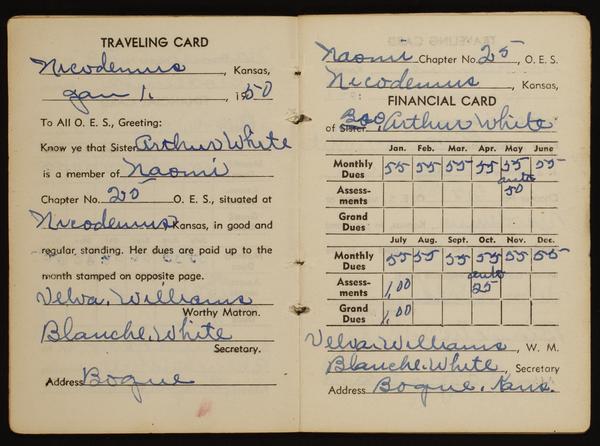 TRAVELING CARD
Nicodemus, Kansas,
Jan 1. , 1950
To All O. E. S., Greeting:
Know ye that Sister Arthur White
is a member of Naomi
Chapter No. 25 O. E. S., situated at
Nicodemus Kansas, in good and
regular standing. Her dues are paid up to the
month stamped on opposite page.
Velva. Williams
Worthy Matron.
Blanche. White
Secretary.
Address Bogue
Naomi Chapter No. 25, O. E. S.
Nicodemus, Kansas,
FINANCIAL CARD
of Sister Bro, Arthur White
Jan. Feb. Mar. Apr. May June
Monthly Dues 55 55 55 55 55 55
Assess-
ments 50
Grand
Dues
July Aug. Sept. Oct. Nov. Dec.
Monthly Dues 55 55 55 55 55 55
Assess-
ments 1,00 25
Grand
Dues 1,00
Velva Williams, W. M.
Blanche. White, Secretary
Address Bogue, Kans.